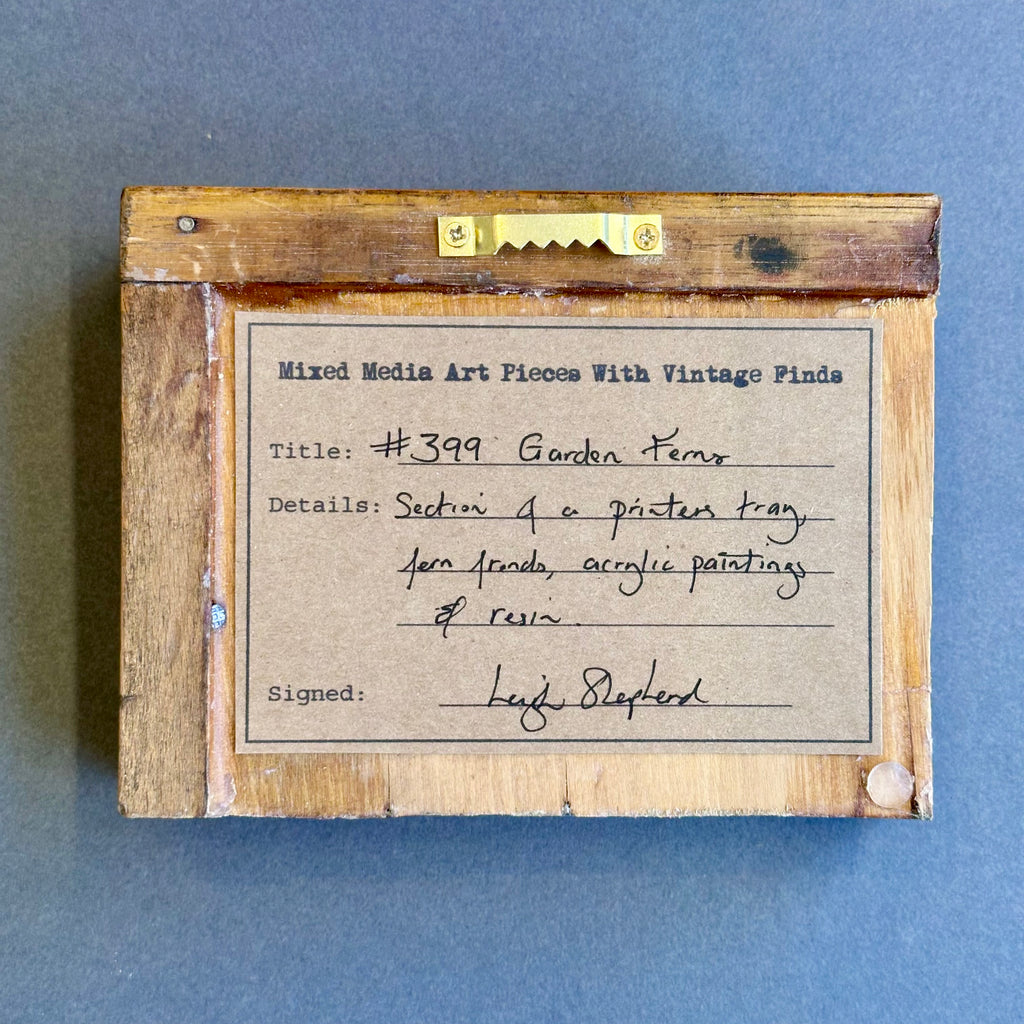 Mixed Media Art Pieces With Vintage Finds
Title: #399 Garden Ferns
Details: Section of a printers tray,
fern fronds, acrylic paintings
& resin.
Signed: Leigh Shepherd